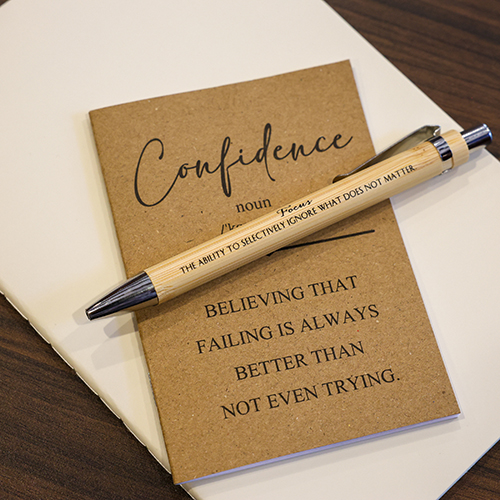 Confidence
noun
Focus
THE ABILITY TO SELECTIVELY IGNORE WHAT DOES NOT MATTER.
BELIEVING THAT
FAILING IS ALWAYS
BETTER THAN
NOT EVEN TRYING.